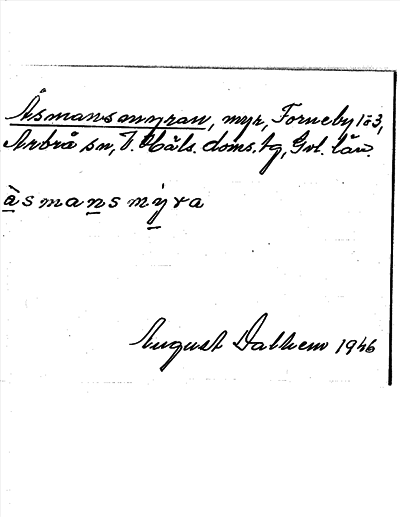 Åsmansmyran, myr, Forneby 1o3,
Arbrå sn, V. Häls. doms. tg, Gvl. län.
åsmansmýra
August Dalhem 1946